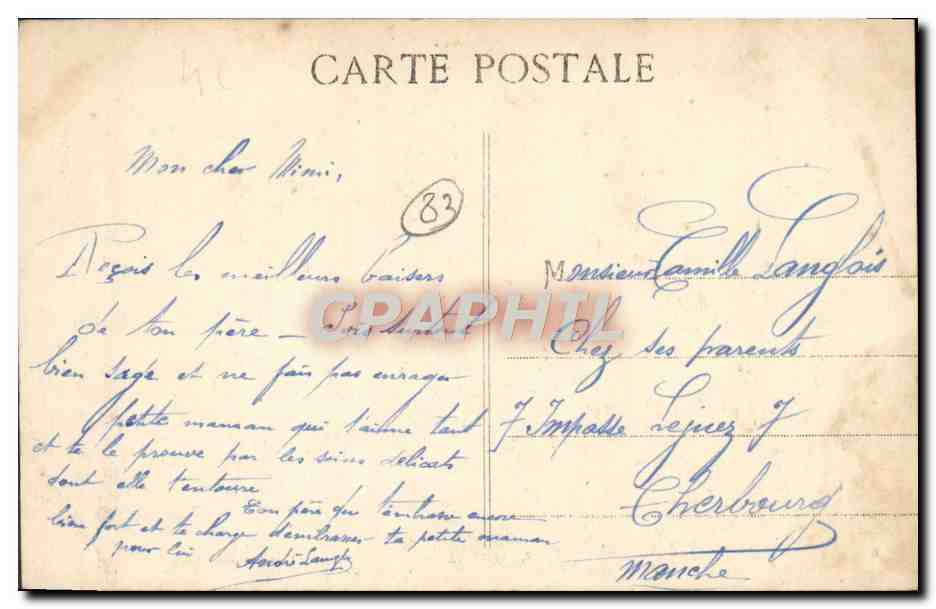 CARTE POSTALE
Mon cher Mimi,
83
Reçois les meilleurs baisers
de ton père – Sois surtout
bien sage et ne fais pas enrager
petite maman qui t'aime tant
et te le prouve par les soins délicats
dont elle t'entoure
Ton père qui t'embrasse encore
bien fort et te charge d'embrasser ta petite maman
pour lui
André Langlois
Monsieur Camille Langlois
Chez ses parents
7 Impasse Lejuez 7
Cherbourg
Manche
CPAPHIL